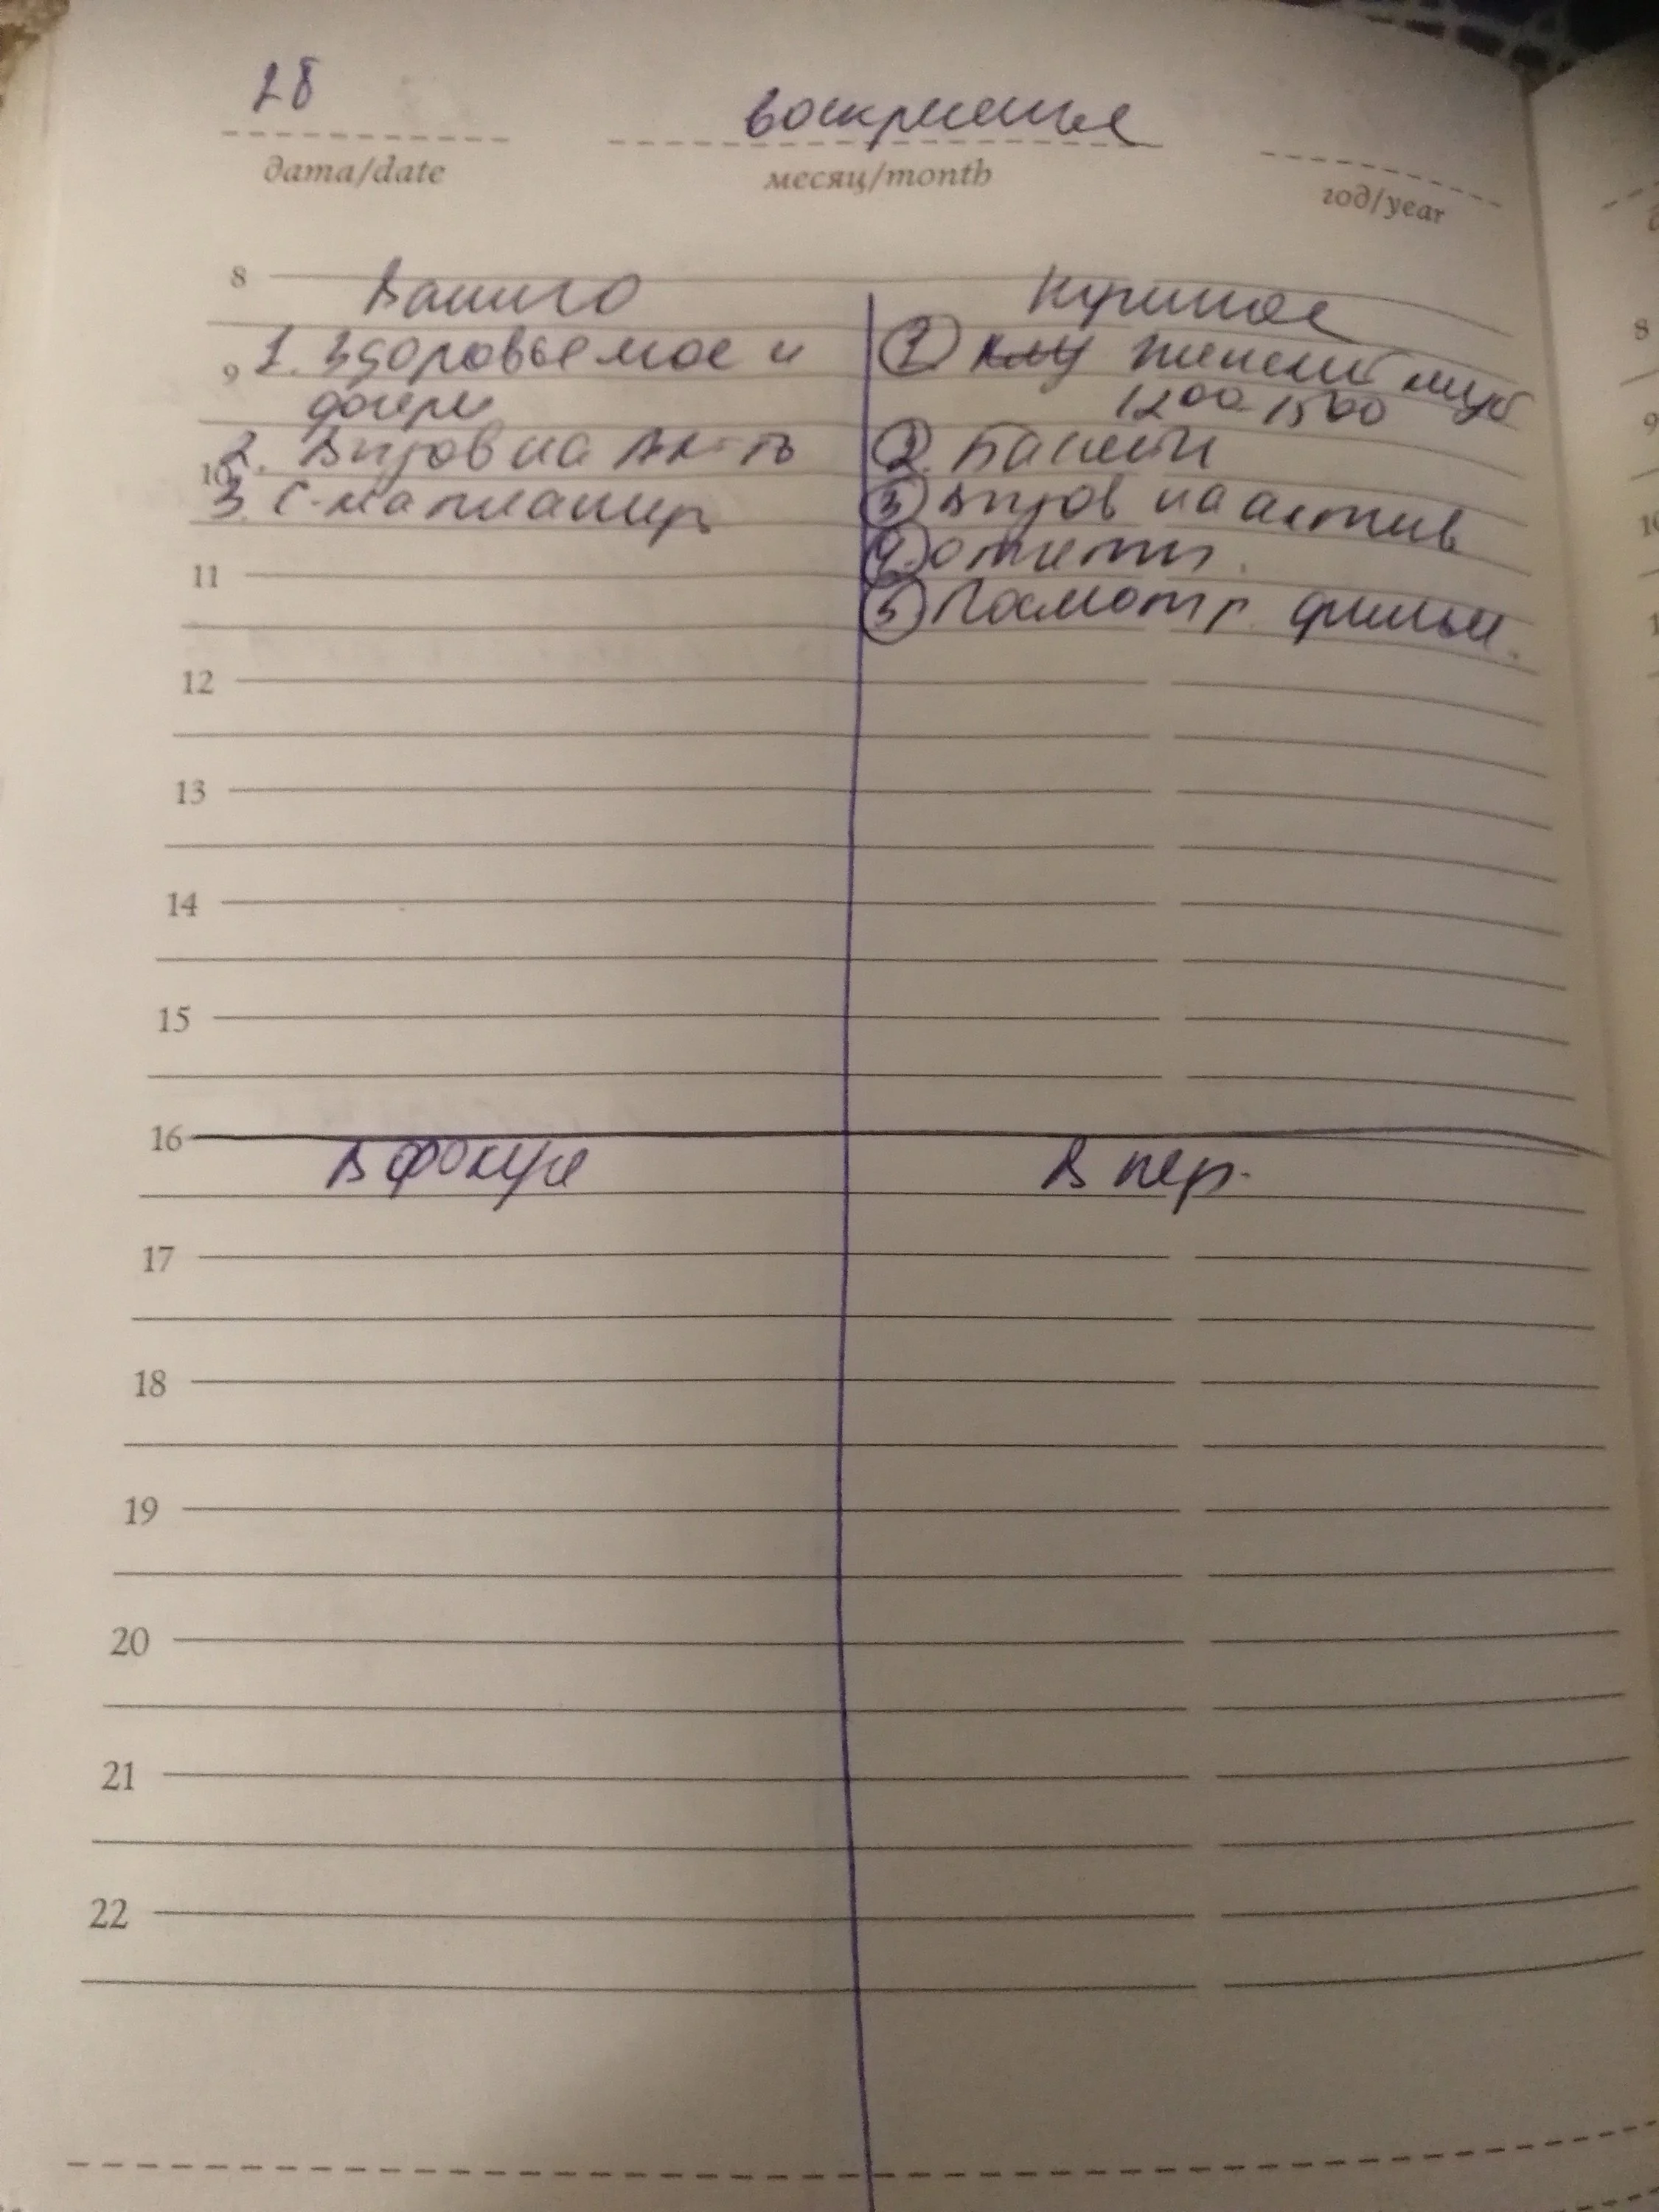 28 воскресенье
дата/date месяц/month год/year
8 Важно Нужное
9 1. Здоровье мое и
дочери
10 2. Вызов на Ак-ть
3. С-ма планир
① Женский клуб
12⁰⁰-15⁰⁰
②
③ Вызов на актив
④ отчеты.
⑤ Посмотр. фильм.
11
12
13
14
15
16
В фокусе В пер.
17
18
19
20
21
22
8
9
10